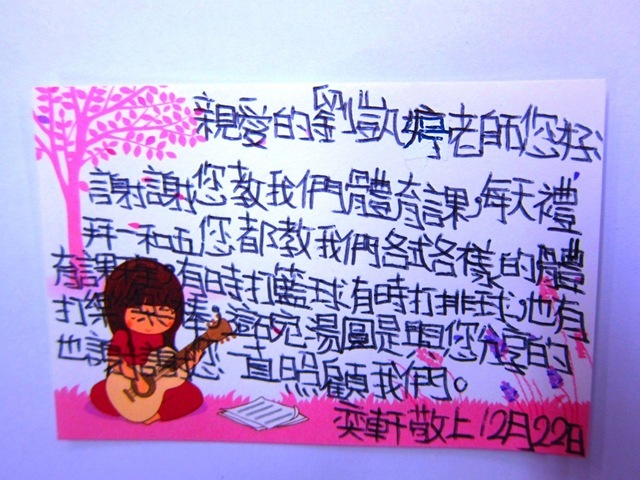 親愛的劉凱婷老師您好:
謝謝您教我們體育課,每天禮
拜一和五您都教我們各式各樣的體
育課 有時打籃球有時打排球,也有
打樂 這碗湯圓是跟您分享的
也讓 您一直照顧我們。
奕軒敬上12月22日